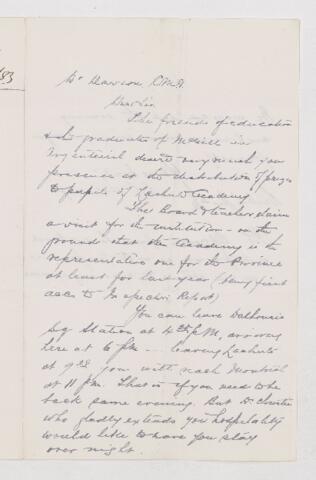 83
Dr Dawson C.M.G.
Dear Sir
The friends of education
& the graduates of McGill in
Argenteuil desire very much your
presence at the distribution of prizes
to pupils of Lachute Academy
The Board & teachers claim
a visit for the institution - on the
ground that the Academy is the
representative one for the Province
at least for last year (being first
acc to Inspectors Report)
You can leave Dalhousie
Sq Station at P.M, arriving
here at 6 pm - leaving Lachute
at you will reach Montreal
at 11 P.M. That is if you need to be
back same evening. But Dr Christie
who gladly extends you hospitality
would like to have you stay
over night.